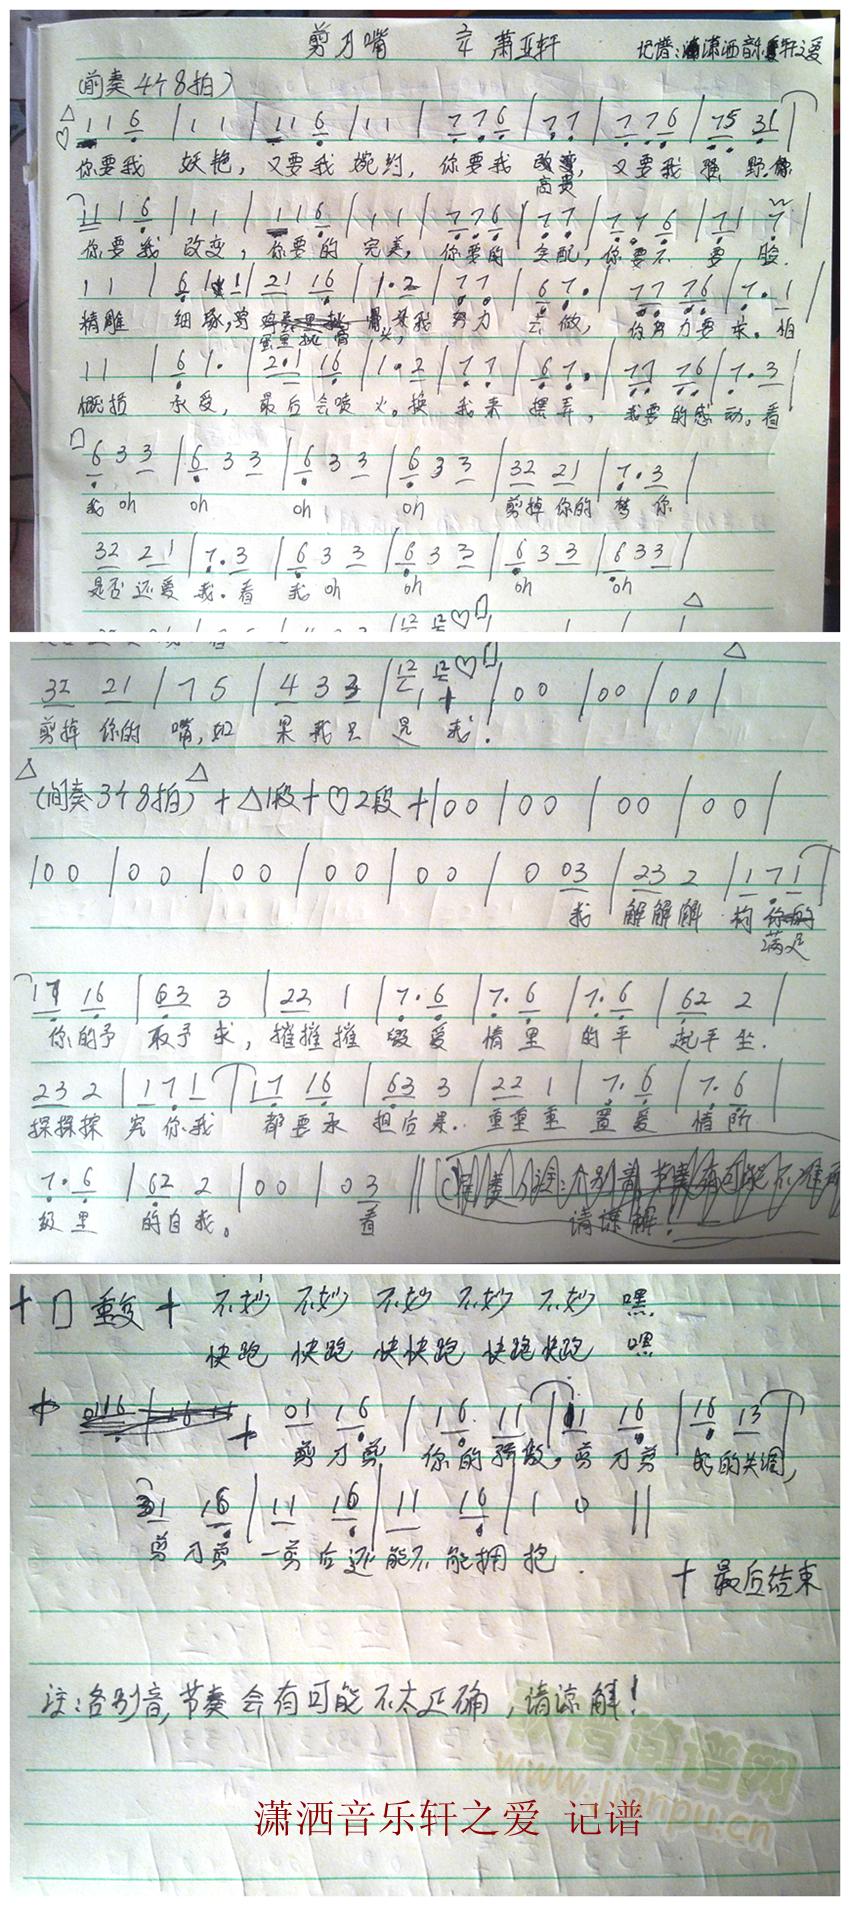 剪刀嘴 2/4 萧亚轩 记谱:潇洒音乐轩之爱
(前奏4个8拍)
1 1 6 | 1 1 | 1 1 6 | 1 1 | 7 7 6 | 7 7 | 7 7 6 | 75 31 |
你要我 妖艳, 又要我 婉约, 你要我 高贵, 又要我 野.你
11 1 6 | 1 1 | 1 1 6 | 1 1 | 7 7 6 | 7 7 | 7 7 6 | 7 1 7 |
你要我 改变, 你要的 完美, 你要的 匹配, 你要不 要 脸.
1 1 | 6 1 1 | 21 16 | 1. 2 | 7 7 | 6 7. | 77 76 | 7. 1 |
精雕 细琢,鸡 蛋里挑骨头, 我 努力 去做, 你努力要求. 怕
1 1 | 6 1. | 2.1 16 | 1. 2 | 7 7 | 6 7. | 77 76 | 7. 3 |
概括 承受, 最后会喷火。换 我来 摆弄, 我要的感动。看
6 3 3 | 6 3 3 | 6 3 3 | 6 3 3 | 32 21 | 7. 3 |
我 oh oh oh oh 剪掉你的 嘴 你
32 21 | 7. 3 | 6 3 3 | 6 3 3 | 6 3 3 | 6 3 3 |
是否还爱 我. 看 我 oh oh oh oh
32 21 | 7 5 | 4 3 3 | 12 12 | 00 | 00 | 00 |
剪掉你的 嘴,如 果我只是 我.
(间奏3个8拍) + △1段 + ♡2段 + | 00 | 00 | 00 | 00 |
| 00 | 00 | 00 | 00 | 00 | 0 03 | 23 2 | 1 7 1 |
我 解解解 构 你 满足
17 16 | 63 3 | 22 1 | 7. 6 | 7. 6 | 7. 6 | 62 2 |
你的予 取予求, 摧摧摧 毁爱 情里 的平 起平坐.
23 2 | 1 7 1 | 17 16 | 63 3 | 22 1 | 7. 6 | 7. 6 |
探探探 究你我 都要承 担后果. 重重重 置爱 情阶
7. 6 | 62 2 | 00 | 0 3 ||
级里 的自我。 看
请谅解!
+ 重复 + 不妙 不妙 不妙 不妙 不妙 嘿
快跑 快跑 快快跑 快跑快跑 嘿
+ + 01 16 | 16 11 | 11 16 | 16 13 |
剪刀剪 你的骄傲, 剪刀剪 的失调,
31 16 | 11 16 | 11 16 | 1 0 ||
剪刀剪 一剪后还能不能拥抱.
+ 最后结束
注:各别音,节奏会有可能不太正确,请谅解!
歌谱简谱网
www.jianpu.cn
潇洒音乐轩之爱 记谱